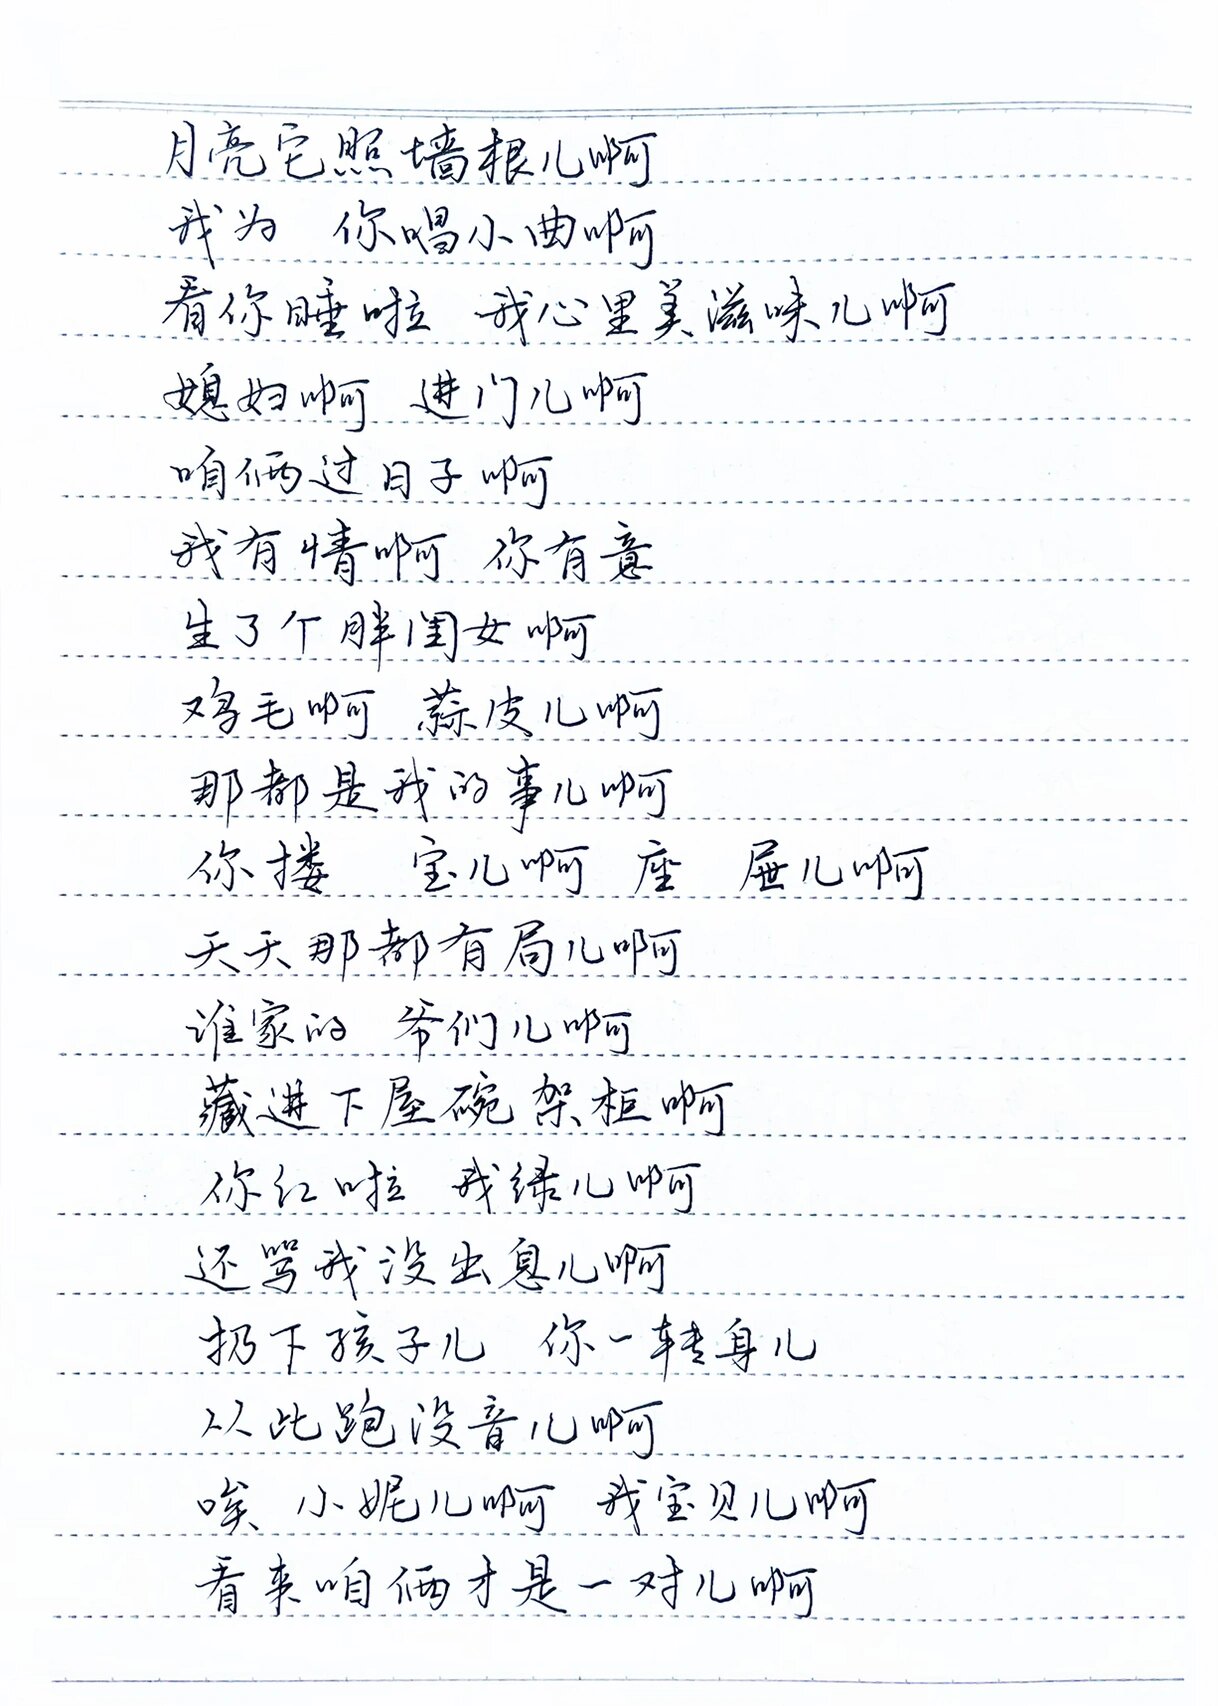 月亮它照墙根儿啊
我为 你唱小曲啊
看你睡啦 我心里美滋味儿啊
媳妇啊 进门儿啊
咱俩过日子啊
我有情啊 你有意
生了个胖闺女啊
鸡毛啊 蒜皮儿啊
那都是我的事儿啊
你搂 宝儿啊 座 屉儿啊
天天那都有局儿啊
谁家的 爷们儿啊
藏进下屋碗架柜啊
你红啦 我绿儿啊
还骂我没出息儿啊
扔下孩子儿 你一转身儿
从此跑没音儿啊
唉 小妮儿啊 我宝贝儿啊
看来咱俩才是一对儿啊